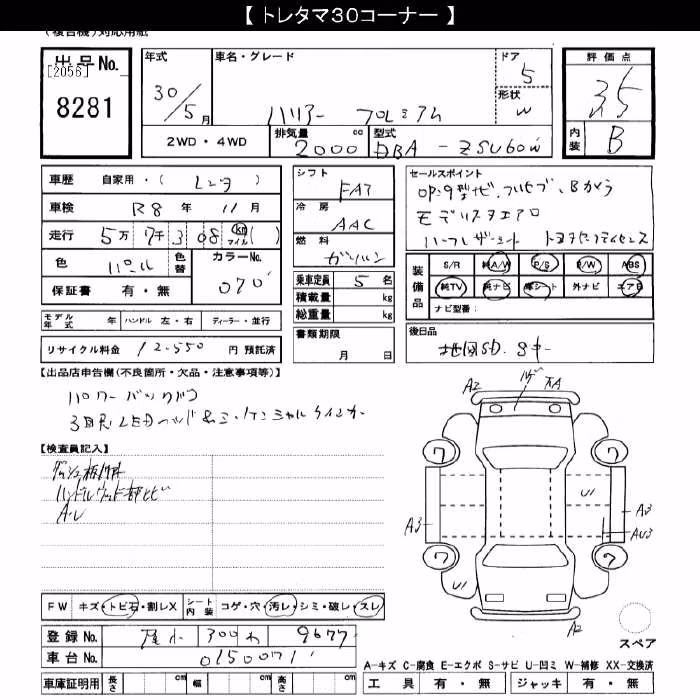 【 トレタマ30コーナー 】
(複合機)対応用紙
出品No.
[2056]
8281
年式
30/5月
車名・グレード
ハリアー プレミアム
ドア
5
形状
W
評価点
3.5
内装
B
2WD・4WD
排気量
2000 cc
型式
DBA-ZSU60W
車歴 自家用・( レンタ )
車検 R8 年 11 月
走行 5万 7千 3 08 km マイル ( )
色 パール 色替
カラーNo. 070
保証書 有・無
シフト
FAT
冷房
AAC
燃料
ガソリン
乗車定員 5 名
積載量 kg
総重量 kg
セールスポイント
OP:9型ナビ、フルセグ、Bカメラ
モデリスタエアロ
ハーフレザーシート トヨタセーフティセンス
装備品
S/R 純A/W P/S P/W ABS
純TV 純ナビ 革シート 外ナビ エアB
ナビ型番:
モデル年式 年 ハンドル 左・右 ディーラー・並行
リサイクル料金 12,550 円 預託済
書類期限
月 日
後日品
地図SD.
【出品店申告欄(不良箇所・欠品・注意事項等)】
パワーバックドア
3眼LEDヘッド&シーケンシャルウインカー
【検査員記入】
ハンドルウッド部ヒビ
A・U
A2
A3
U1
A3
AU3
U1
A2
ワ
ワ
ワ
ワ
FW キズ・トビ石・割レX
シート内装 コゲ・穴・汚レ・シミ・破レ・スレ
登録No. 300 わ 9677
車台No. 0150071
車庫証明用 長さ cm 幅 cm 高さ cm
スペア
A-キズ C-腐食 E-エクボ S-サビ U-凹ミ W-補修 XX-交換済
工具 有・無 ジャッキ 有・無